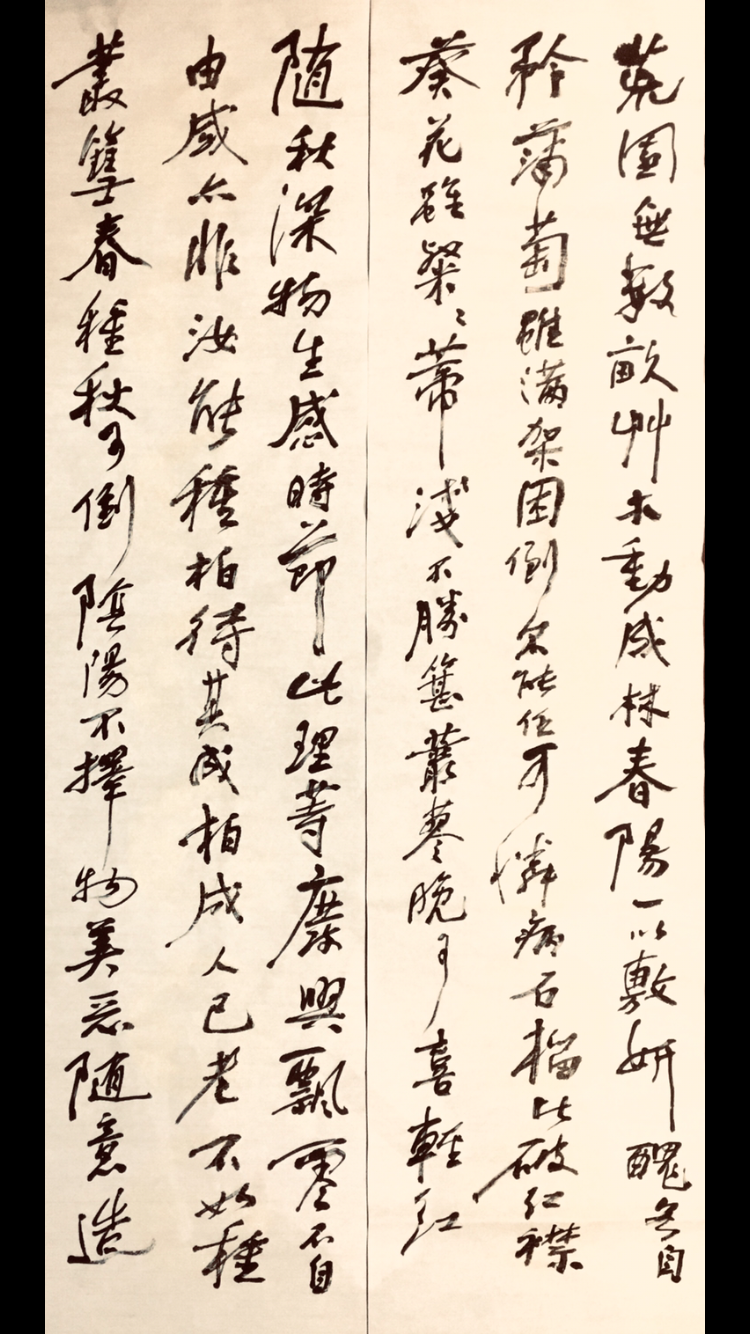 荒園無數畝艸木動成林春陽一以敷妍醜各自
矜蒲萄雖滿架困倒不能任可憐病石榴比破紅襟
葵花雖粲〻蒂淺不勝簪叢蓼晚可喜輕紅
随秋深物生感時節此理等廢興飄零不自
由盛亦非汝能種柏待其成柏成人已老不如種
叢篲春種秋可倒陰陽不擇物美惡随意造